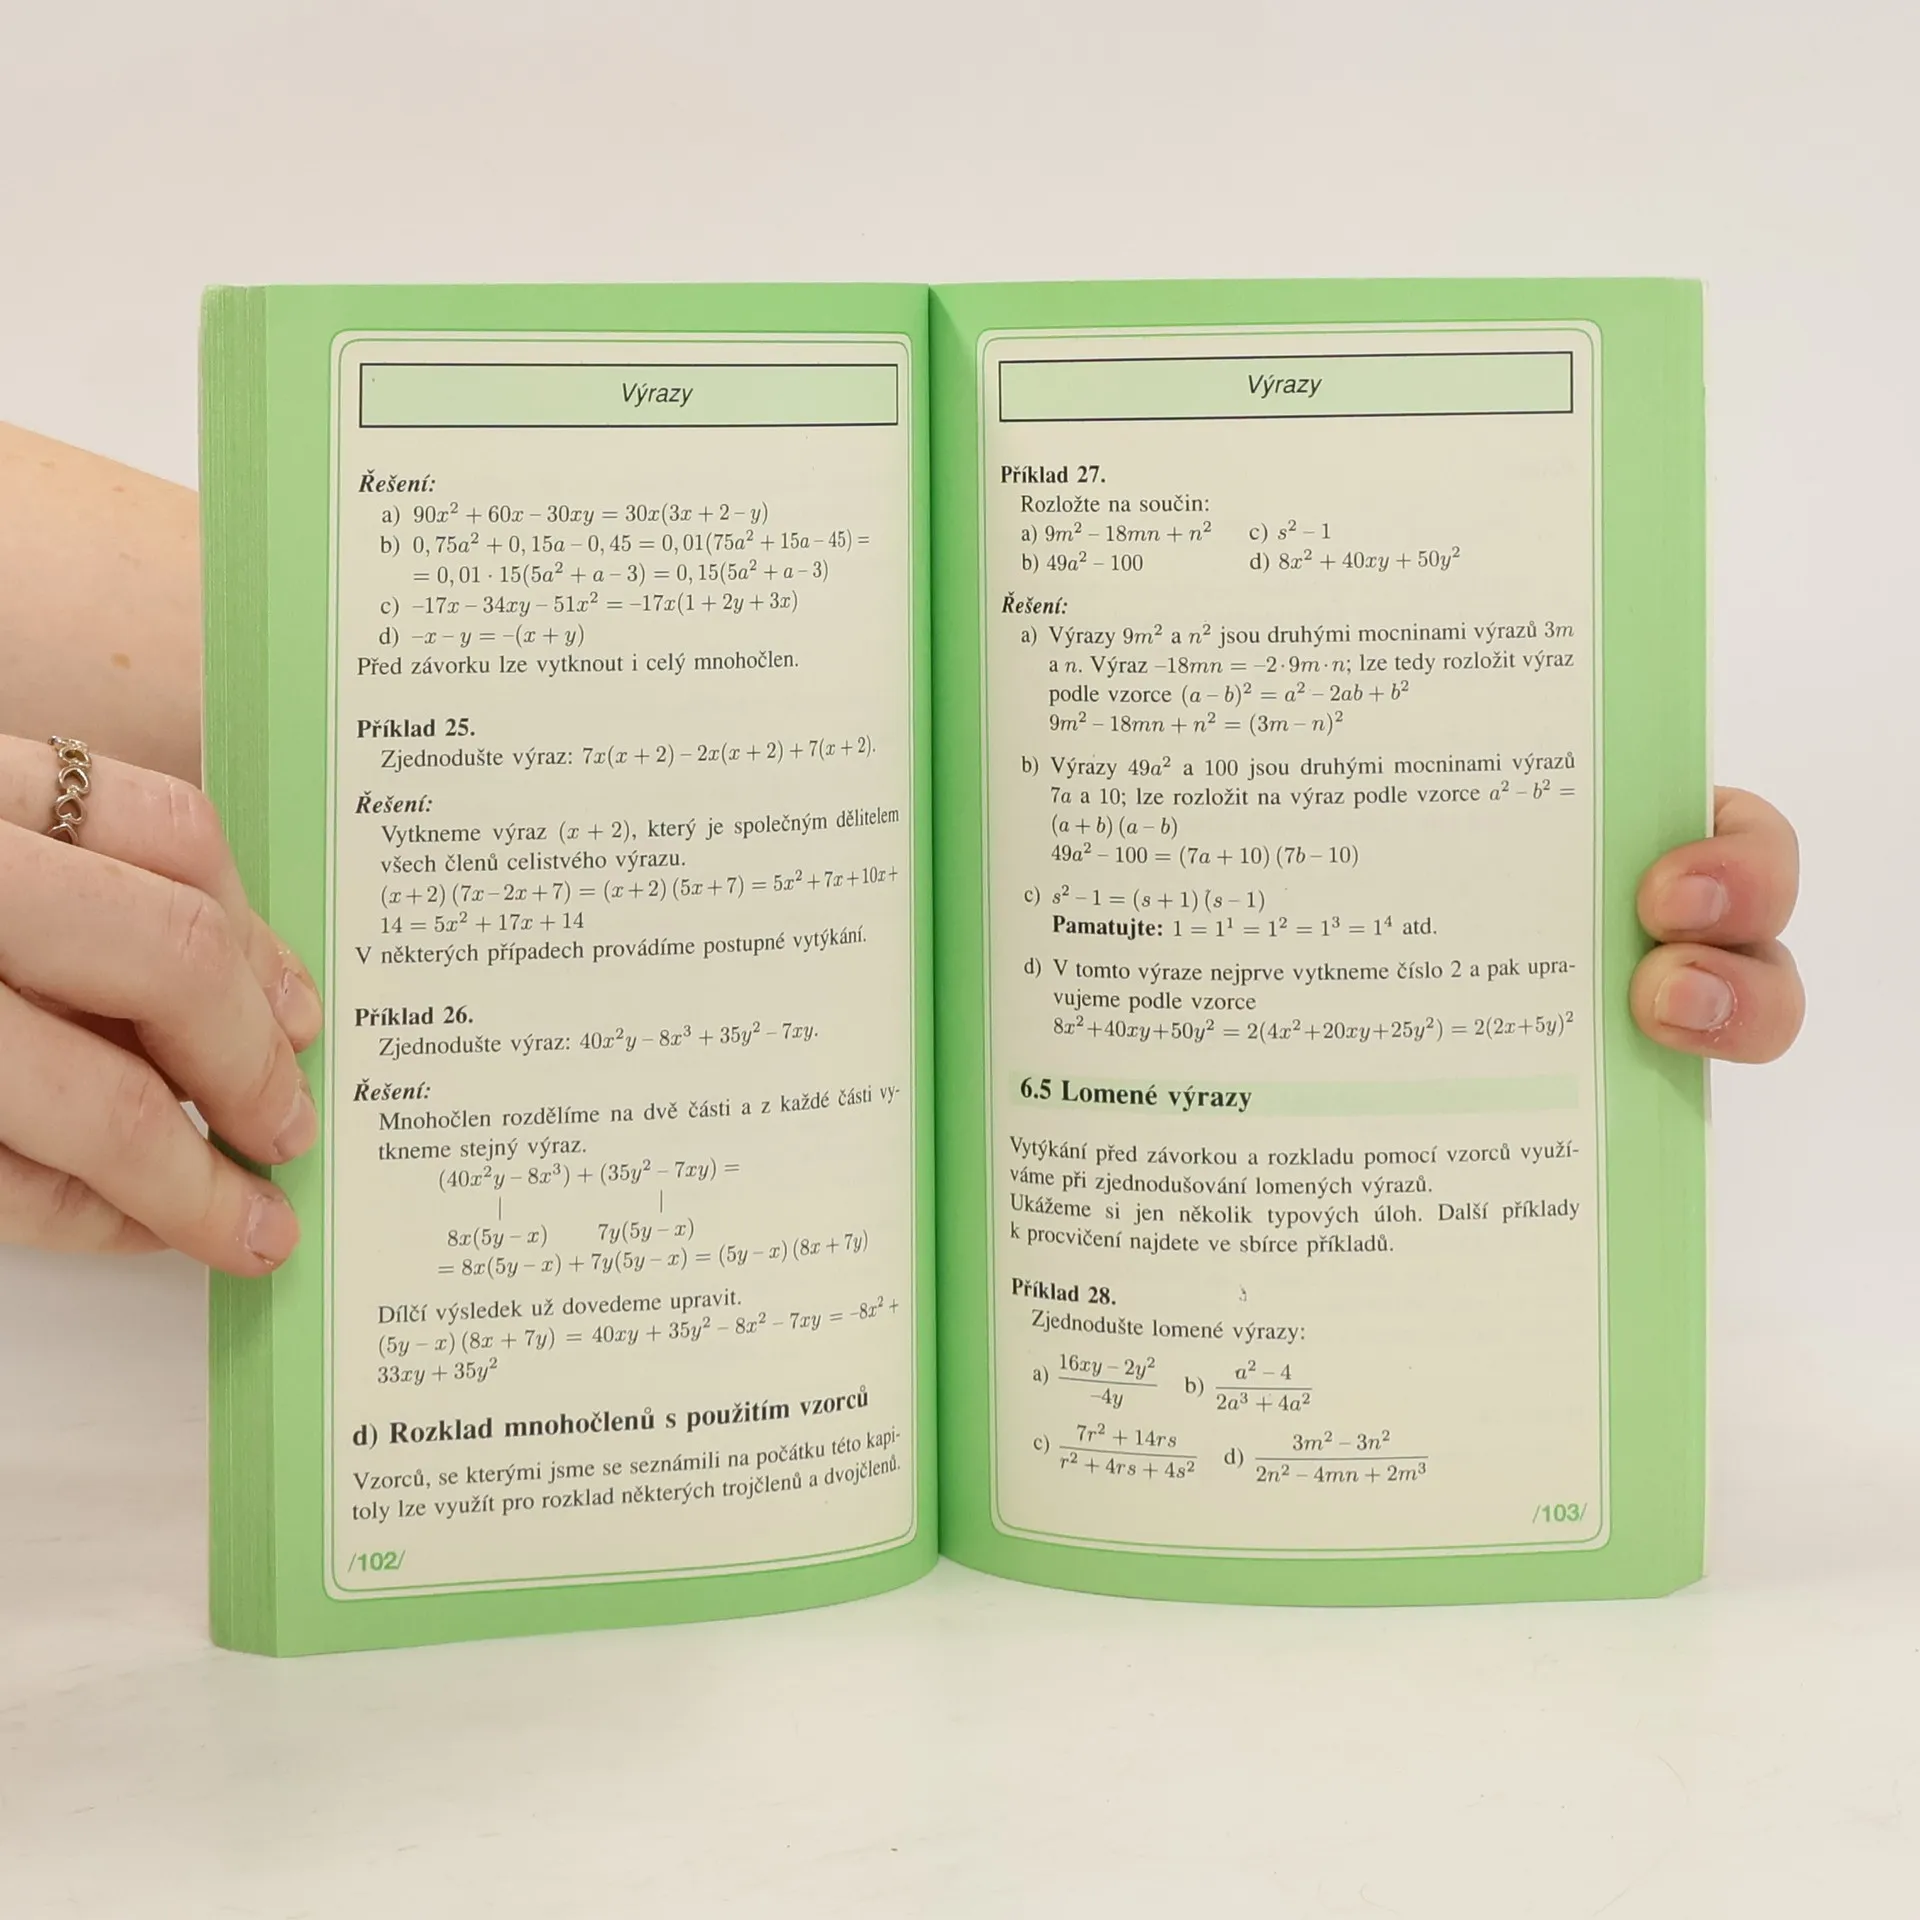 Výrazy
Řešení:
a) 90x² + 60x – 30xy = 30x(3x + 2 – y)
b) 0,75a² + 0,15a – 0,45 = 0,01(75a² + 15a – 45) =
= 0,01 · 15(5a² + a – 3) = 0,15(5a² + a – 3)
c) –17x – 34xy – 51x² = –17x(1 + 2y + 3x)
d) –x – y = –(x + y)
Před závorku lze vytknout i celý mnohočlen.
Příklad 25.
Zjednodušte výraz: 7x(x + 2) – 2x(x + 2) + 7(x + 2).
Řešení:
Vytkneme výraz (x + 2), který je společným dělitelem
všech členů celistvého výrazu.
(x + 2) (7x – 2x + 7) = (x + 2) (5x + 7) = 5x² + 7x + 10x +
14 = 5x² + 17x + 14
V některých případech provádíme postupné vytýkání.
Příklad 26.
Zjednodušte výraz: 40x²y – 8x³ + 35y² – 7xy.
Řešení:
Mnohočlen rozdělíme na dvě části a z každé části vy-
tkneme stejný výraz.
(40x²y – 8x³) + (35y² – 7xy) =
| |
8x(5y – x) 7y(5y – x)
= 8x(5y – x) + 7y(5y – x) = (5y – x) (8x + 7y)
Dílčí výsledek už dovedeme upravit.
(5y – x) (8x + 7y) = 40xy + 35y² – 8x² – 7xy = –8x² +
33xy + 35y²
d) Rozklad mnohočlenů s použitím vzorců
Vzorců, se kterými jsme se seznámili na počátku této kapi-
toly lze využít pro rozklad některých trojčlenů a dvojčlenů.
/102/
Výrazy
Příklad 27.
Rozložte na součin:
a) 9m² – 18mn + n² c) s² – 1
b) 49a² – 100 d) 8x² + 40xy + 50y²
Řešení:
a) Výrazy 9m² a n² jsou druhými mocninami výrazů 3m
a n. Výraz –18mn = –2·9m·n; lze tedy rozložit výraz
podle vzorce (a – b)² = a² – 2ab + b²
9m² – 18mn + n² = (3m – n)²
b) Výrazy 49a² a 100 jsou druhými mocninami výrazů
7a a 10; lze rozložit na výraz podle vzorce a² – b² =
(a + b) (a – b)
49a² – 100 = (7a + 10) (7b – 10)
c) s² – 1 = (s + 1) (s – 1)
Pamatujte: 1 = 1¹ = 1² = 1³ = 1⁴ atd.
d) V tomto výraze nejprve vytkneme číslo 2 a pak upra-
vujeme podle vzorce
8x² + 40xy + 50y² = 2(4x² + 20xy + 25y²) = 2(2x + 5y)²
6.5 Lomené výrazy
Vytýkání před závorkou a rozkladu pomocí vzorců využí-
váme při zjednodušování lomených výrazů.
Ukážeme si jen několik typových úloh. Další příklady
k procvičení najdete ve sbírce příkladů.
Příklad 28.
Zjednodušte lomené výrazy:
a) (16xy – 2y²)/(–4y) b) (a² – 4)/(2a³ + 4a²)
c) (7r² + 14rs)/(r² + 4rs + 4s²) d) (3m² – 3n²)/(2n² – 4mn + 2m³)
/103/